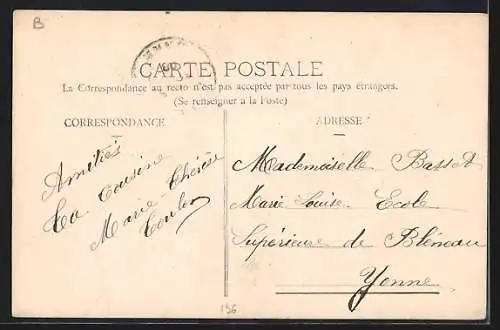 B
CARTE POSTALE
La Correspondance au recto n'est pas acceptée par tous les pays étrangers.
(Se renseigner à la Poste)
CORRESPONDANCE
Amitiés
Ta Cousine
Marie Thérèse
ADRESSE
Mademoiselle Basset
Marie Louise. Ecole
Supérieure de Bléneau
Yonne
136